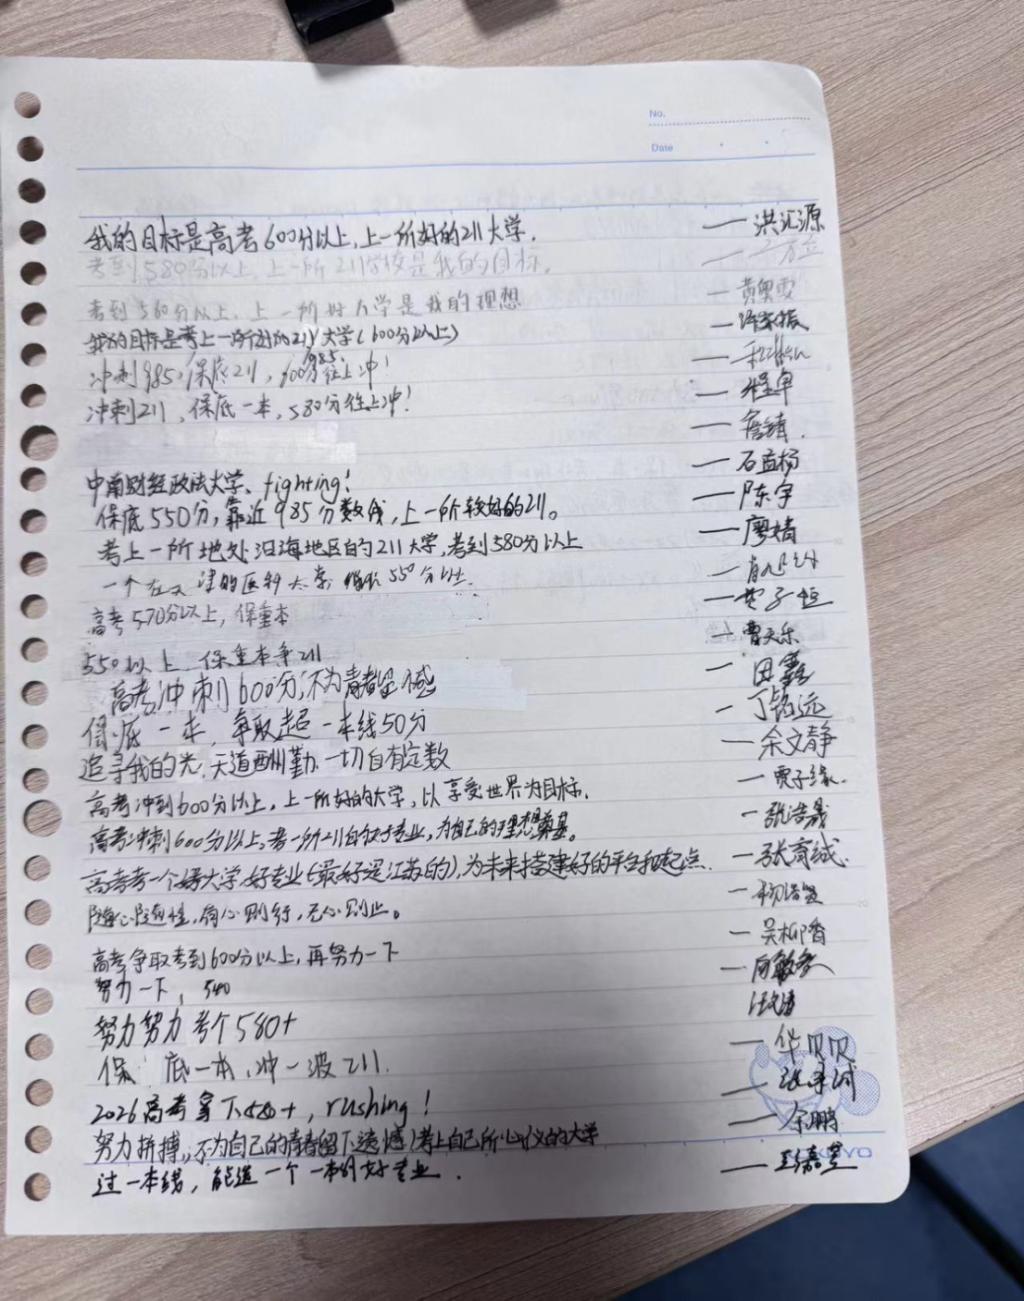 No.
Date
我的目标是高考600分以上,上一所好的211大学. —洪汇源
考到580分以上,上一所211学校是我的目标.
考到560分以上,上一所好大学是我的理想 —黄奥雯
我的目标是考上一所好的211大学(600分以上)
冲刺985,保底211,600分往上冲!
985.
冲刺211,保底一本,580分往上冲! —程卓
—詹婧.
中南财经政法大学、fighting! —石益杨
保底550分,靠近985分数线,上一所较好的211。 —陈宇
考上一所地处沿海地区的211大学,考到580分以上 —廖婧
一个在天津的医科大学 550分以上.
高考570分以上,保重本 —黄子恒
550以上 保重本争211 —曹天乐
高考冲刺600分,不为青春留憾 —田鑫
保底一本,争取超一本线50分 —丁铭远
追寻我的光,天道酬勤,一切自有定数 —余文静
高考冲到600分以上,上一所好的大学,以享受世界为目标. —贾子缘.
高考冲刺600分以上,考一所211的好专业,为自己的理想奠基。 —张浩晟
高考考一个好大学好专业(最好是江苏的),为未来搭建好的平台和起点. —张育诚.
随心随性,有心则行,无心则止。
高考争取考到600分以上,再努力一下 —吴柳香
努力一下,540
努力努力考个580+
保底一本,冲一波211. —华贝贝
2026高考拿下580+,rushing!
努力拼搏,不为自己的青春留下遗憾,考上自己所心仪的大学 —余鹏
过一本线,能选一个一本的好专业. —王嘉莹